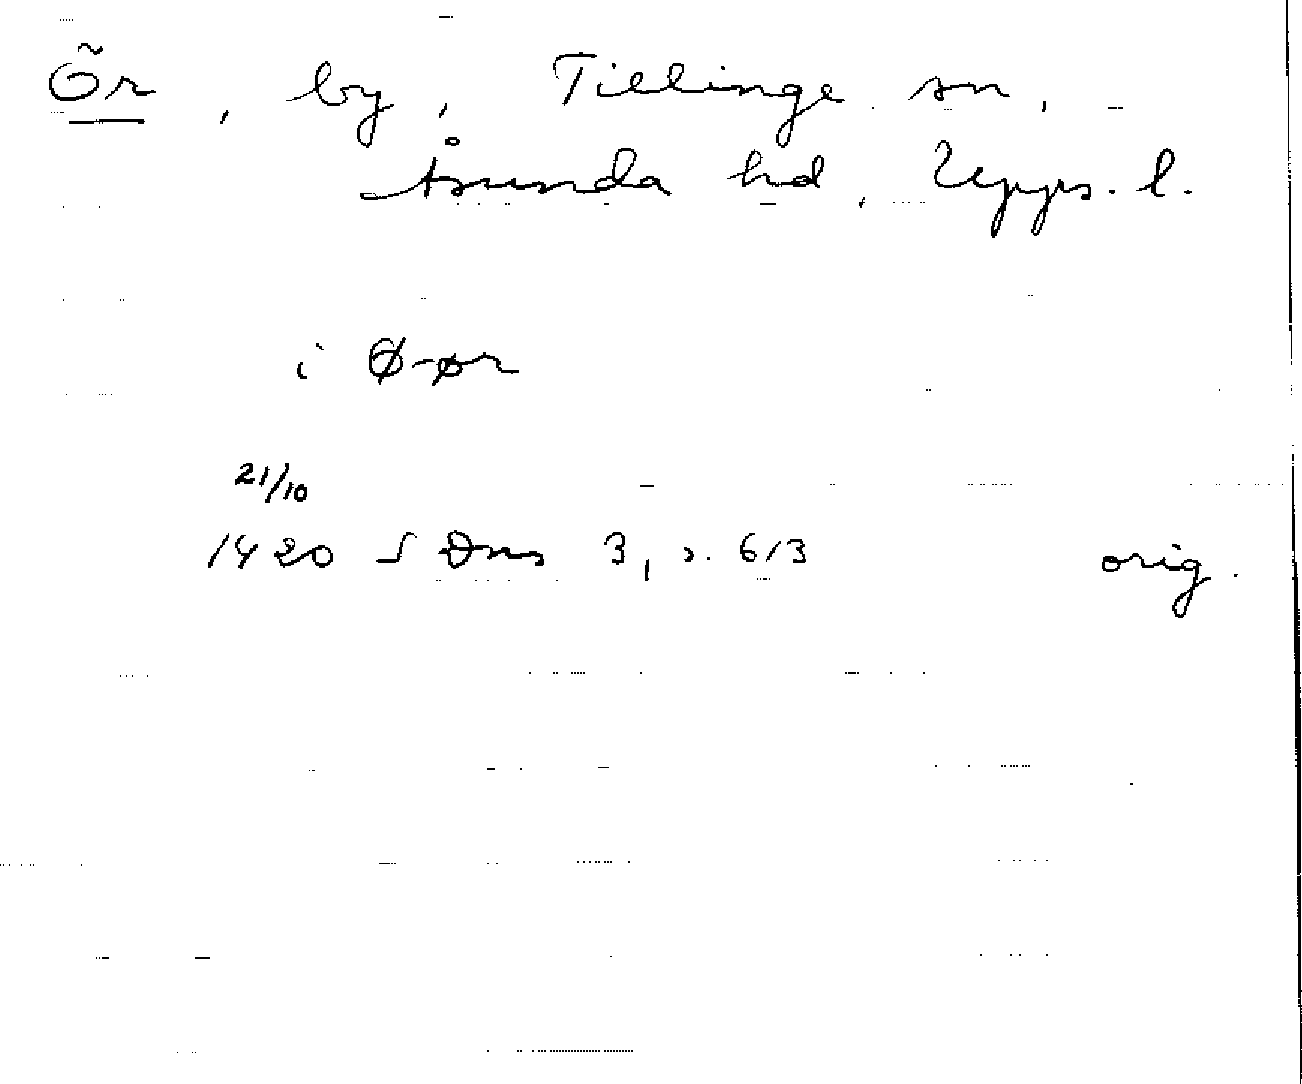 Ör, by, Tillinge sn,
Åsunda hd, Upps. l.
i Ø-ør
21/10
1420 S Dns 3, s. 613 orig.